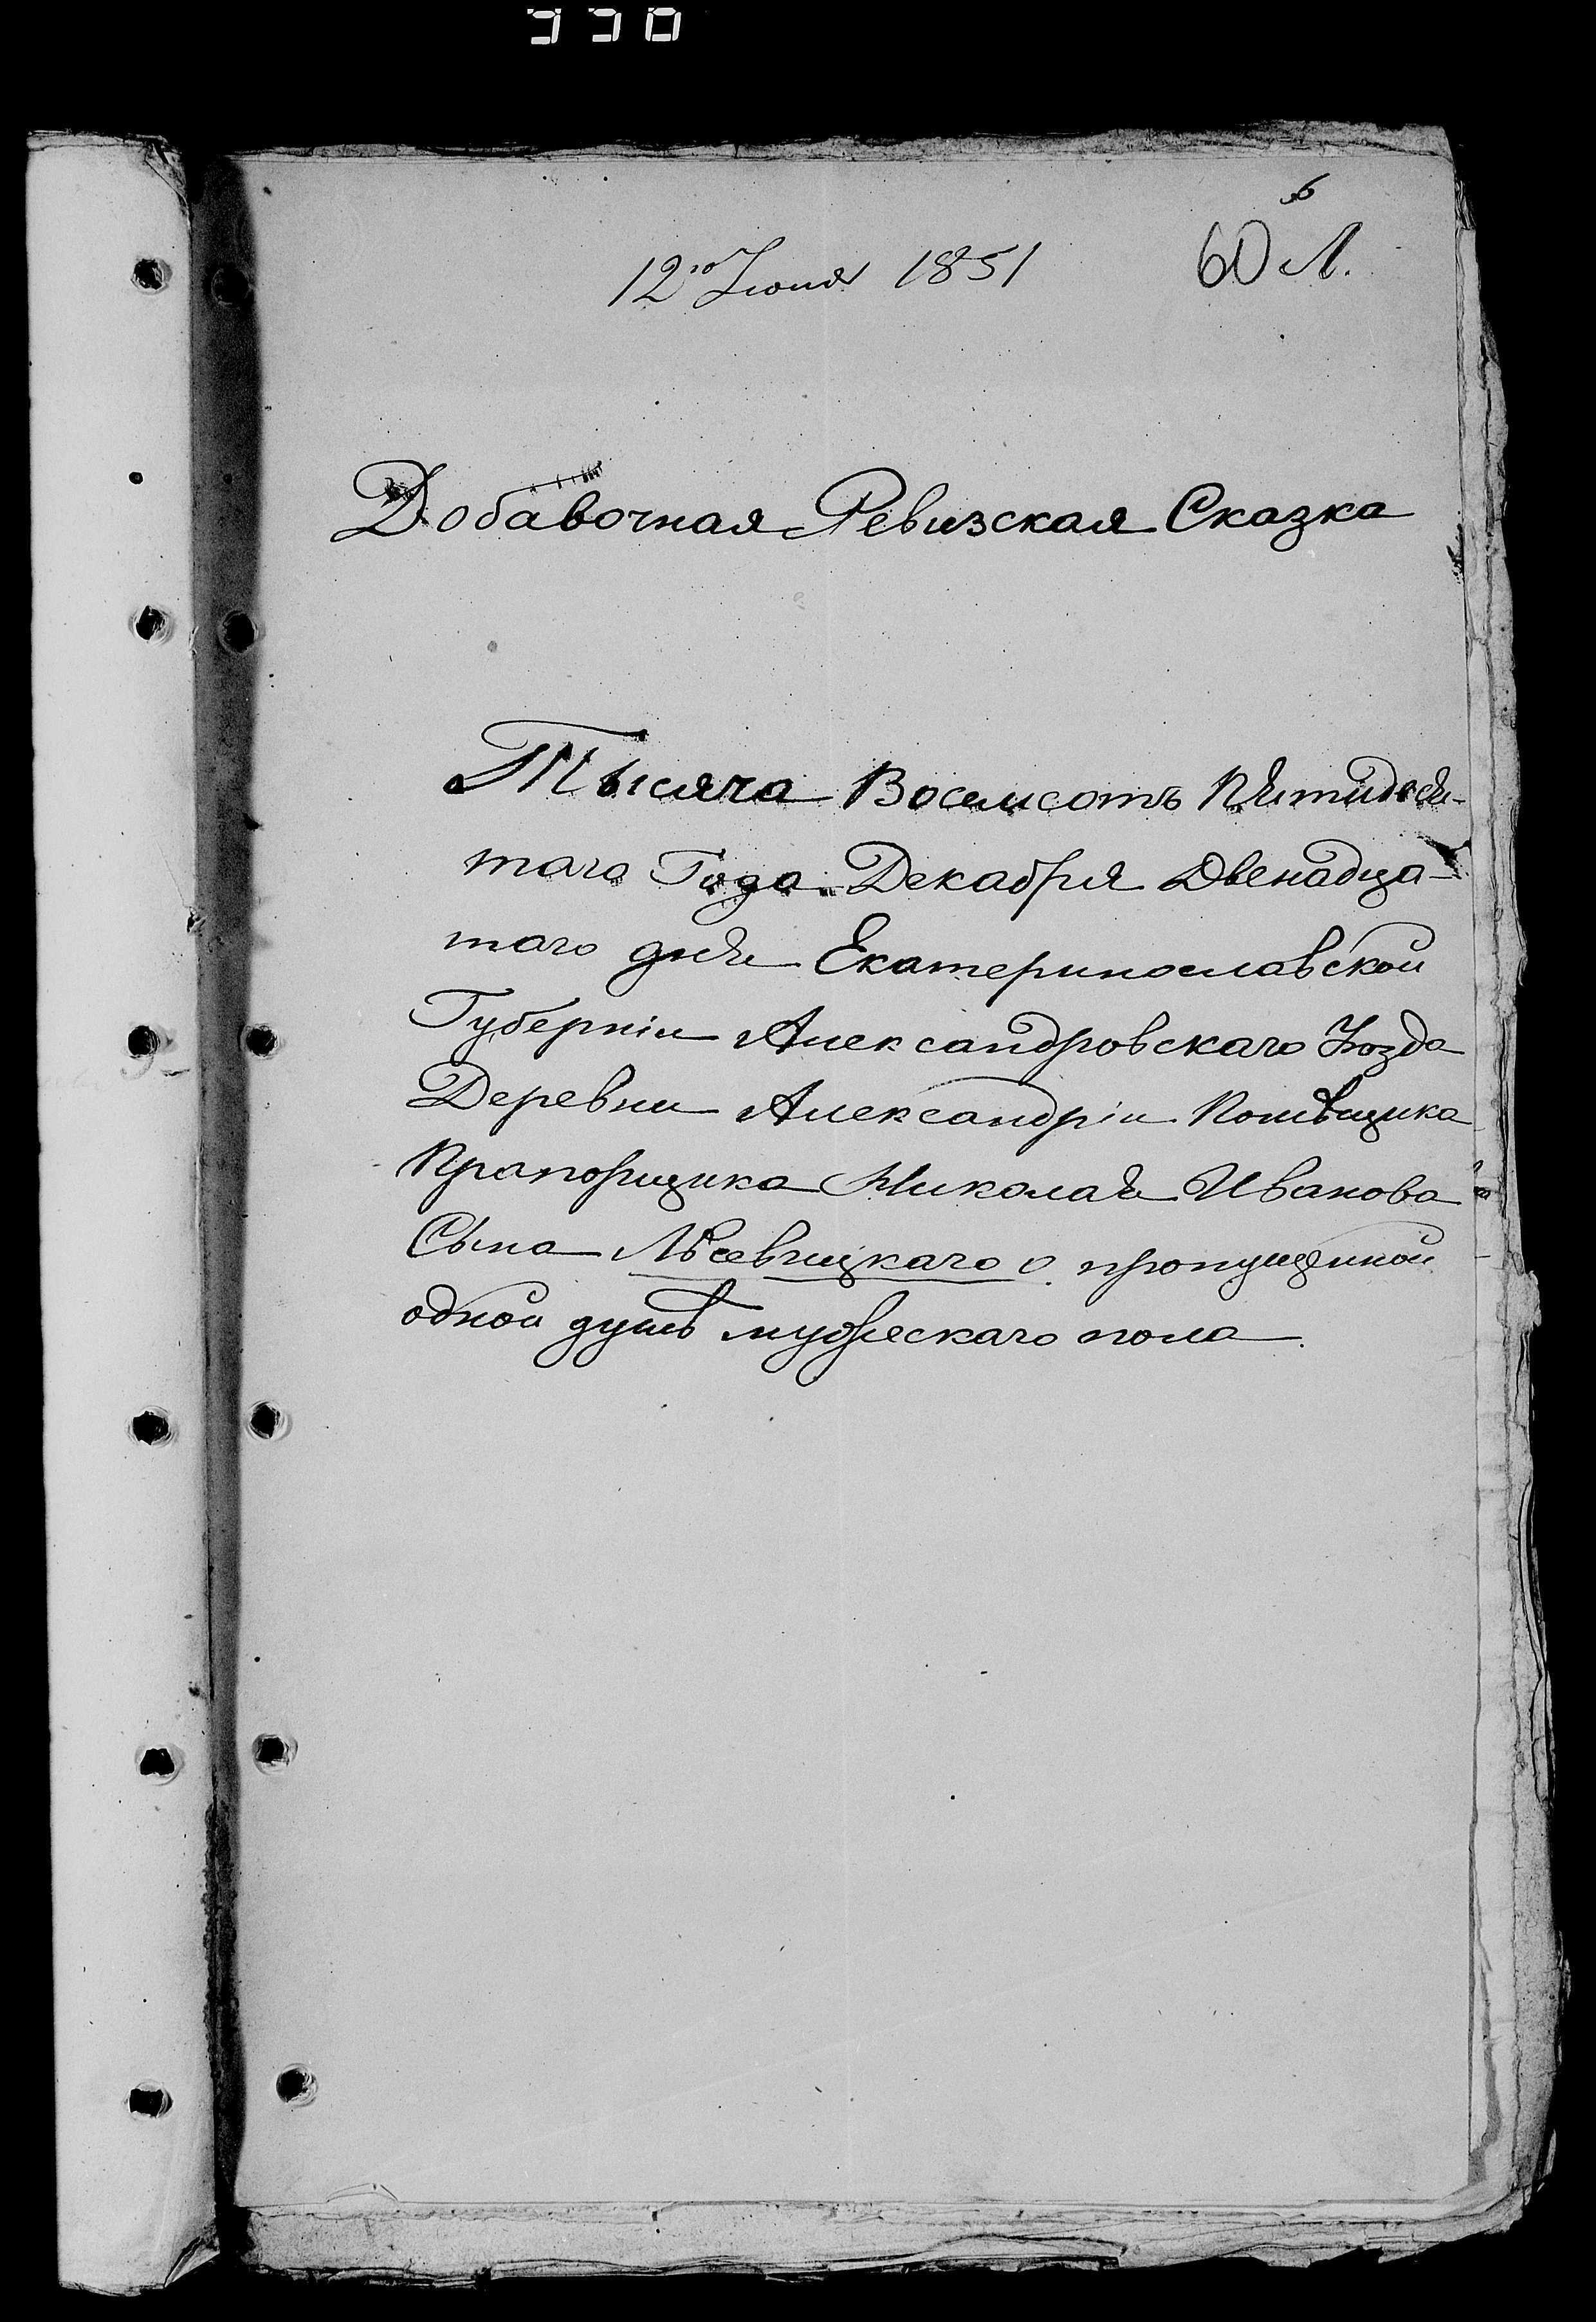 6
12го Іюня 1851
60 Л.
Добавочная Ревизская Сказка
Тысяча Восемсотъ Пятидеся-
таго Года Декабря Двенадца-
таго дня Екатеринославской
Губерніи Александровскаго Уѣзда
Деревни Александріи Помѣщика
Прапорщика Николая Иванова
Сына о пропущенной
одной душѣ мужескаго пола.